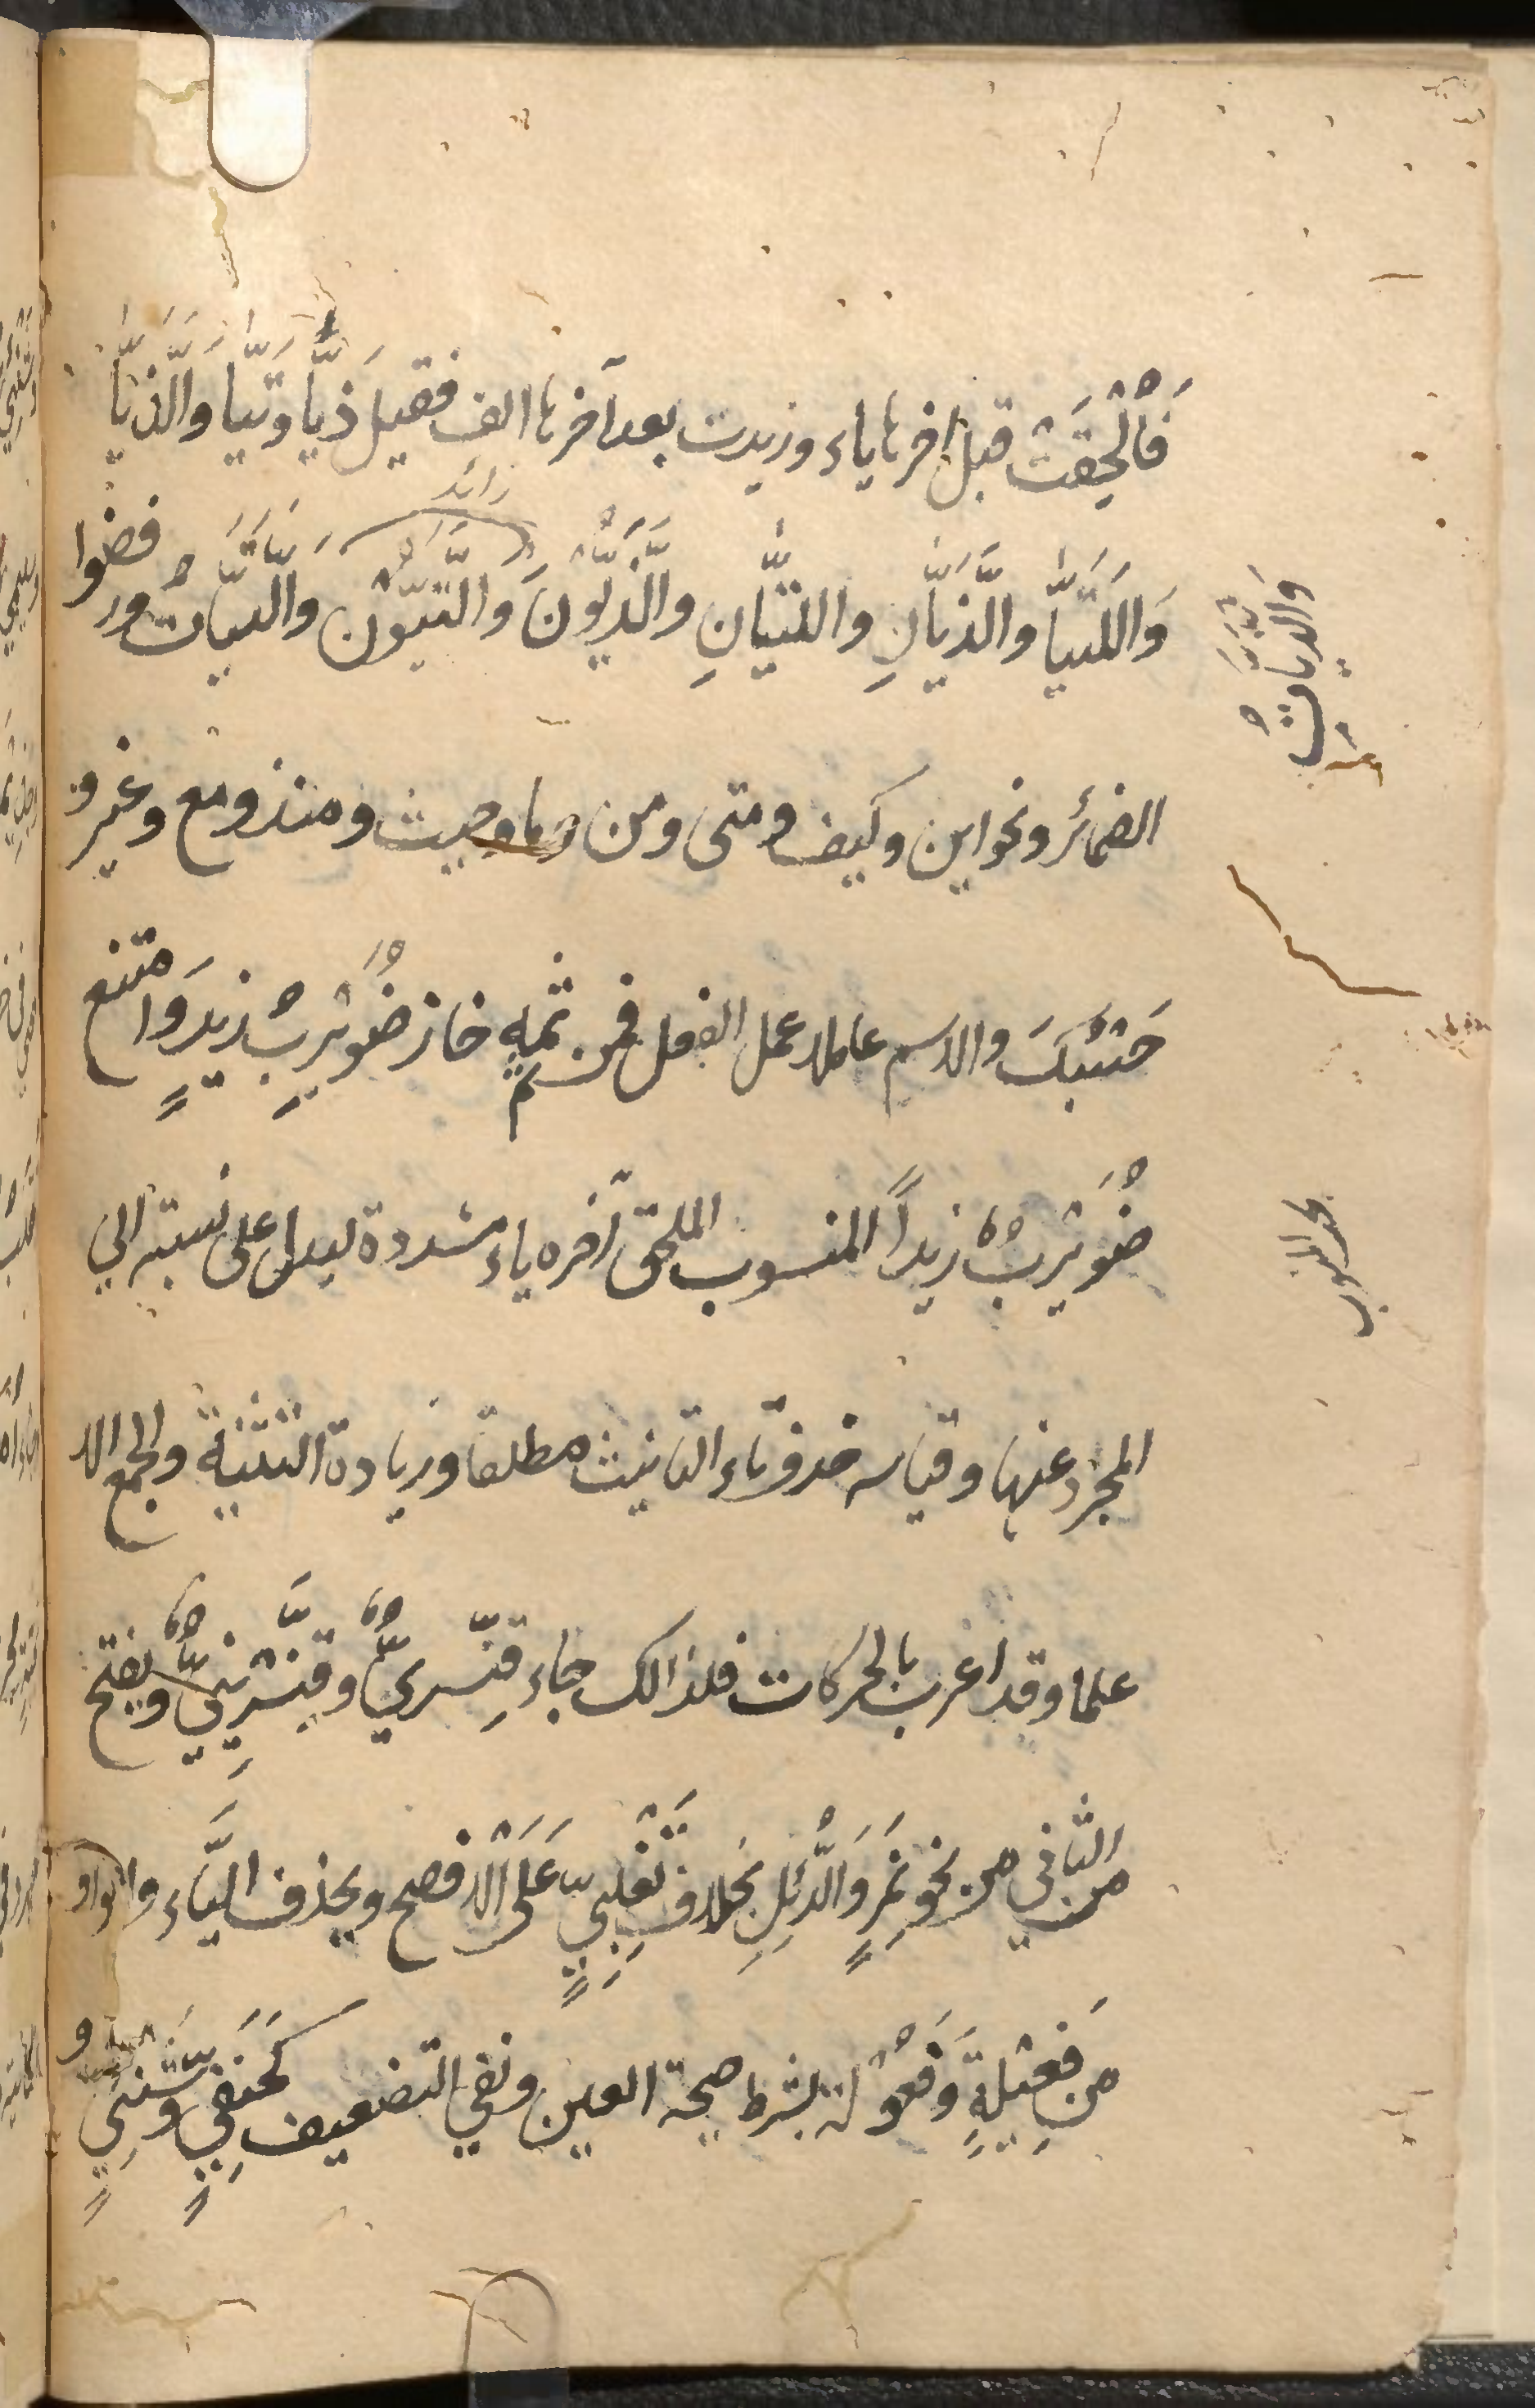 فَاُلْحِقَتْ قبل اخرها ياء وزيدت بعد آخرها الف فقيل ذَيَّا وتَيَّا وَالَّذَيَّا
زائد
وَاللَّتَيَّا والَّذَيَّانِ واللتَيَّانِ والَّذَيُّوْنَ وَالَّتَيُّوْن وَالَّتَيَّاتُ ورفضوا
وَاللَّتَيَّاتُ
الضمائر ونحو اين وكيف ومتى ومن وما وحيث ومنذ ومع وغير و
حَسْبُكَ والاسم عاملا عمل الفعل فمن ثَمه خاز ضُوَيْرِبُ زيدٍ وَامتنع
ضُوَيْرِبٌ زيداً المنسوب الملحق آخره ياء مشددة ليدل على نسبته الى
بحث المنسوب
المجرد عنها وقياسه حذف تاء التانيث مطلقا وزيادة التثنية والجمع الا
علما وقد اعرب بالحركات فلذالك جاء قِنّسريٌّ وقِنَّسْرِينِيٌّ ويفتح
الثاني من نحو نَمِرٍ وَالدُّئِلِ بخلاف تَغْلِبِيٍّ عَلَى اْلافصح ويحذف اليَاء والواو
من فَعِيْلةٍ وَفَعُوْلة بشرط صحة العين ونفي التضعيف كَحَنَفِيٍّ وَشَنَئِيٍّ و